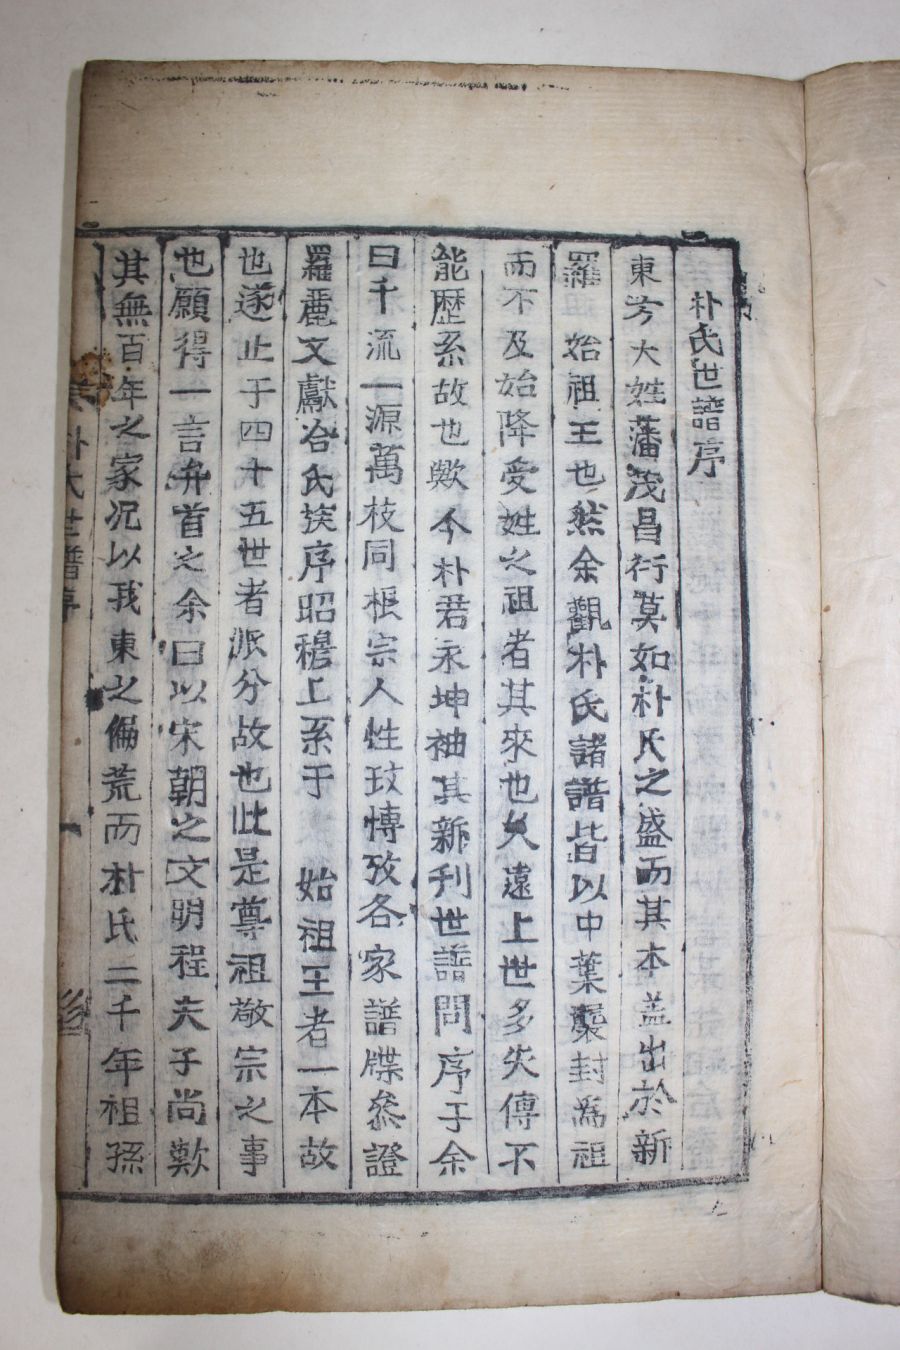 朴氏世譜序
東方大姓藩茂昌衍莫如朴氏之盛而其本盖出於新
羅始祖王也然余觀朴氏諸譜皆以中葉襲封為祖
而不及始降受姓之祖者其來也久遠上世多失傳不
能歷系故也歟今朴君永坤袖其新刊世譜問序于余
曰千流一源萬枝同根宗人性玟慱攷各家譜牒叅證
羅麗文獻合氏族序昭穆上系于始祖王者一本故
也遂止于四十五世者派分故也此是尊祖敬宗之事
也願得一言弁首之余曰以宋朝之文明程夫子尚歎
其無百年之家况以我東之偏荒而朴氏二千年祖孫
朴氏世譜序
一